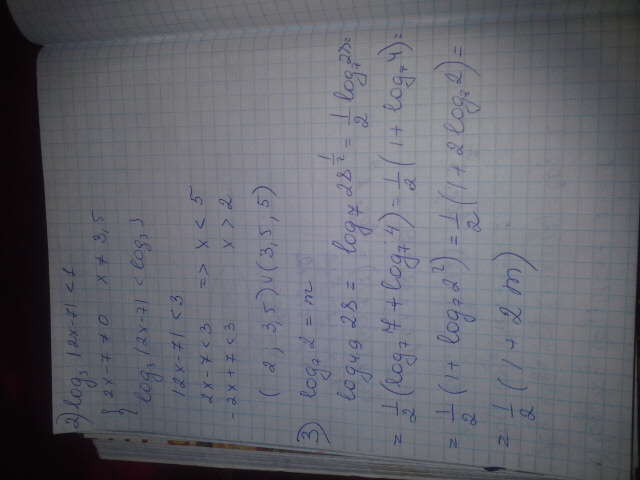 2) log₃ |2x-7| < 1
{ 2x-7≠0 x≠3,5
log₃ |2x-7| < log₃ 3
|2x-7| < 3
2x-7<3 => x<5
-2x+7<3 x>2
(2; 3,5)∪(3,5; 5)
3) log₇ 2 = m
log₄₉ 28 = log₇² 28 = 1/2 log₇ 28=
= 1/2 (log₇ 7 + log₇ 4) = 1/2 (1+ log₇ 4)=
= 1/2 (1+ log₇ 2²) = 1/2 (1+ 2 log₇ 2)=
= 1/2 (1+ 2m)